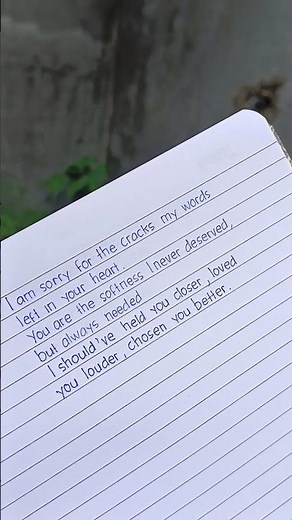 I am sorry for the cracks my words
left in your heart.
You are the softness I never deserved,
but always needed
I should've held you closer, loved
you louder, chosen you better.